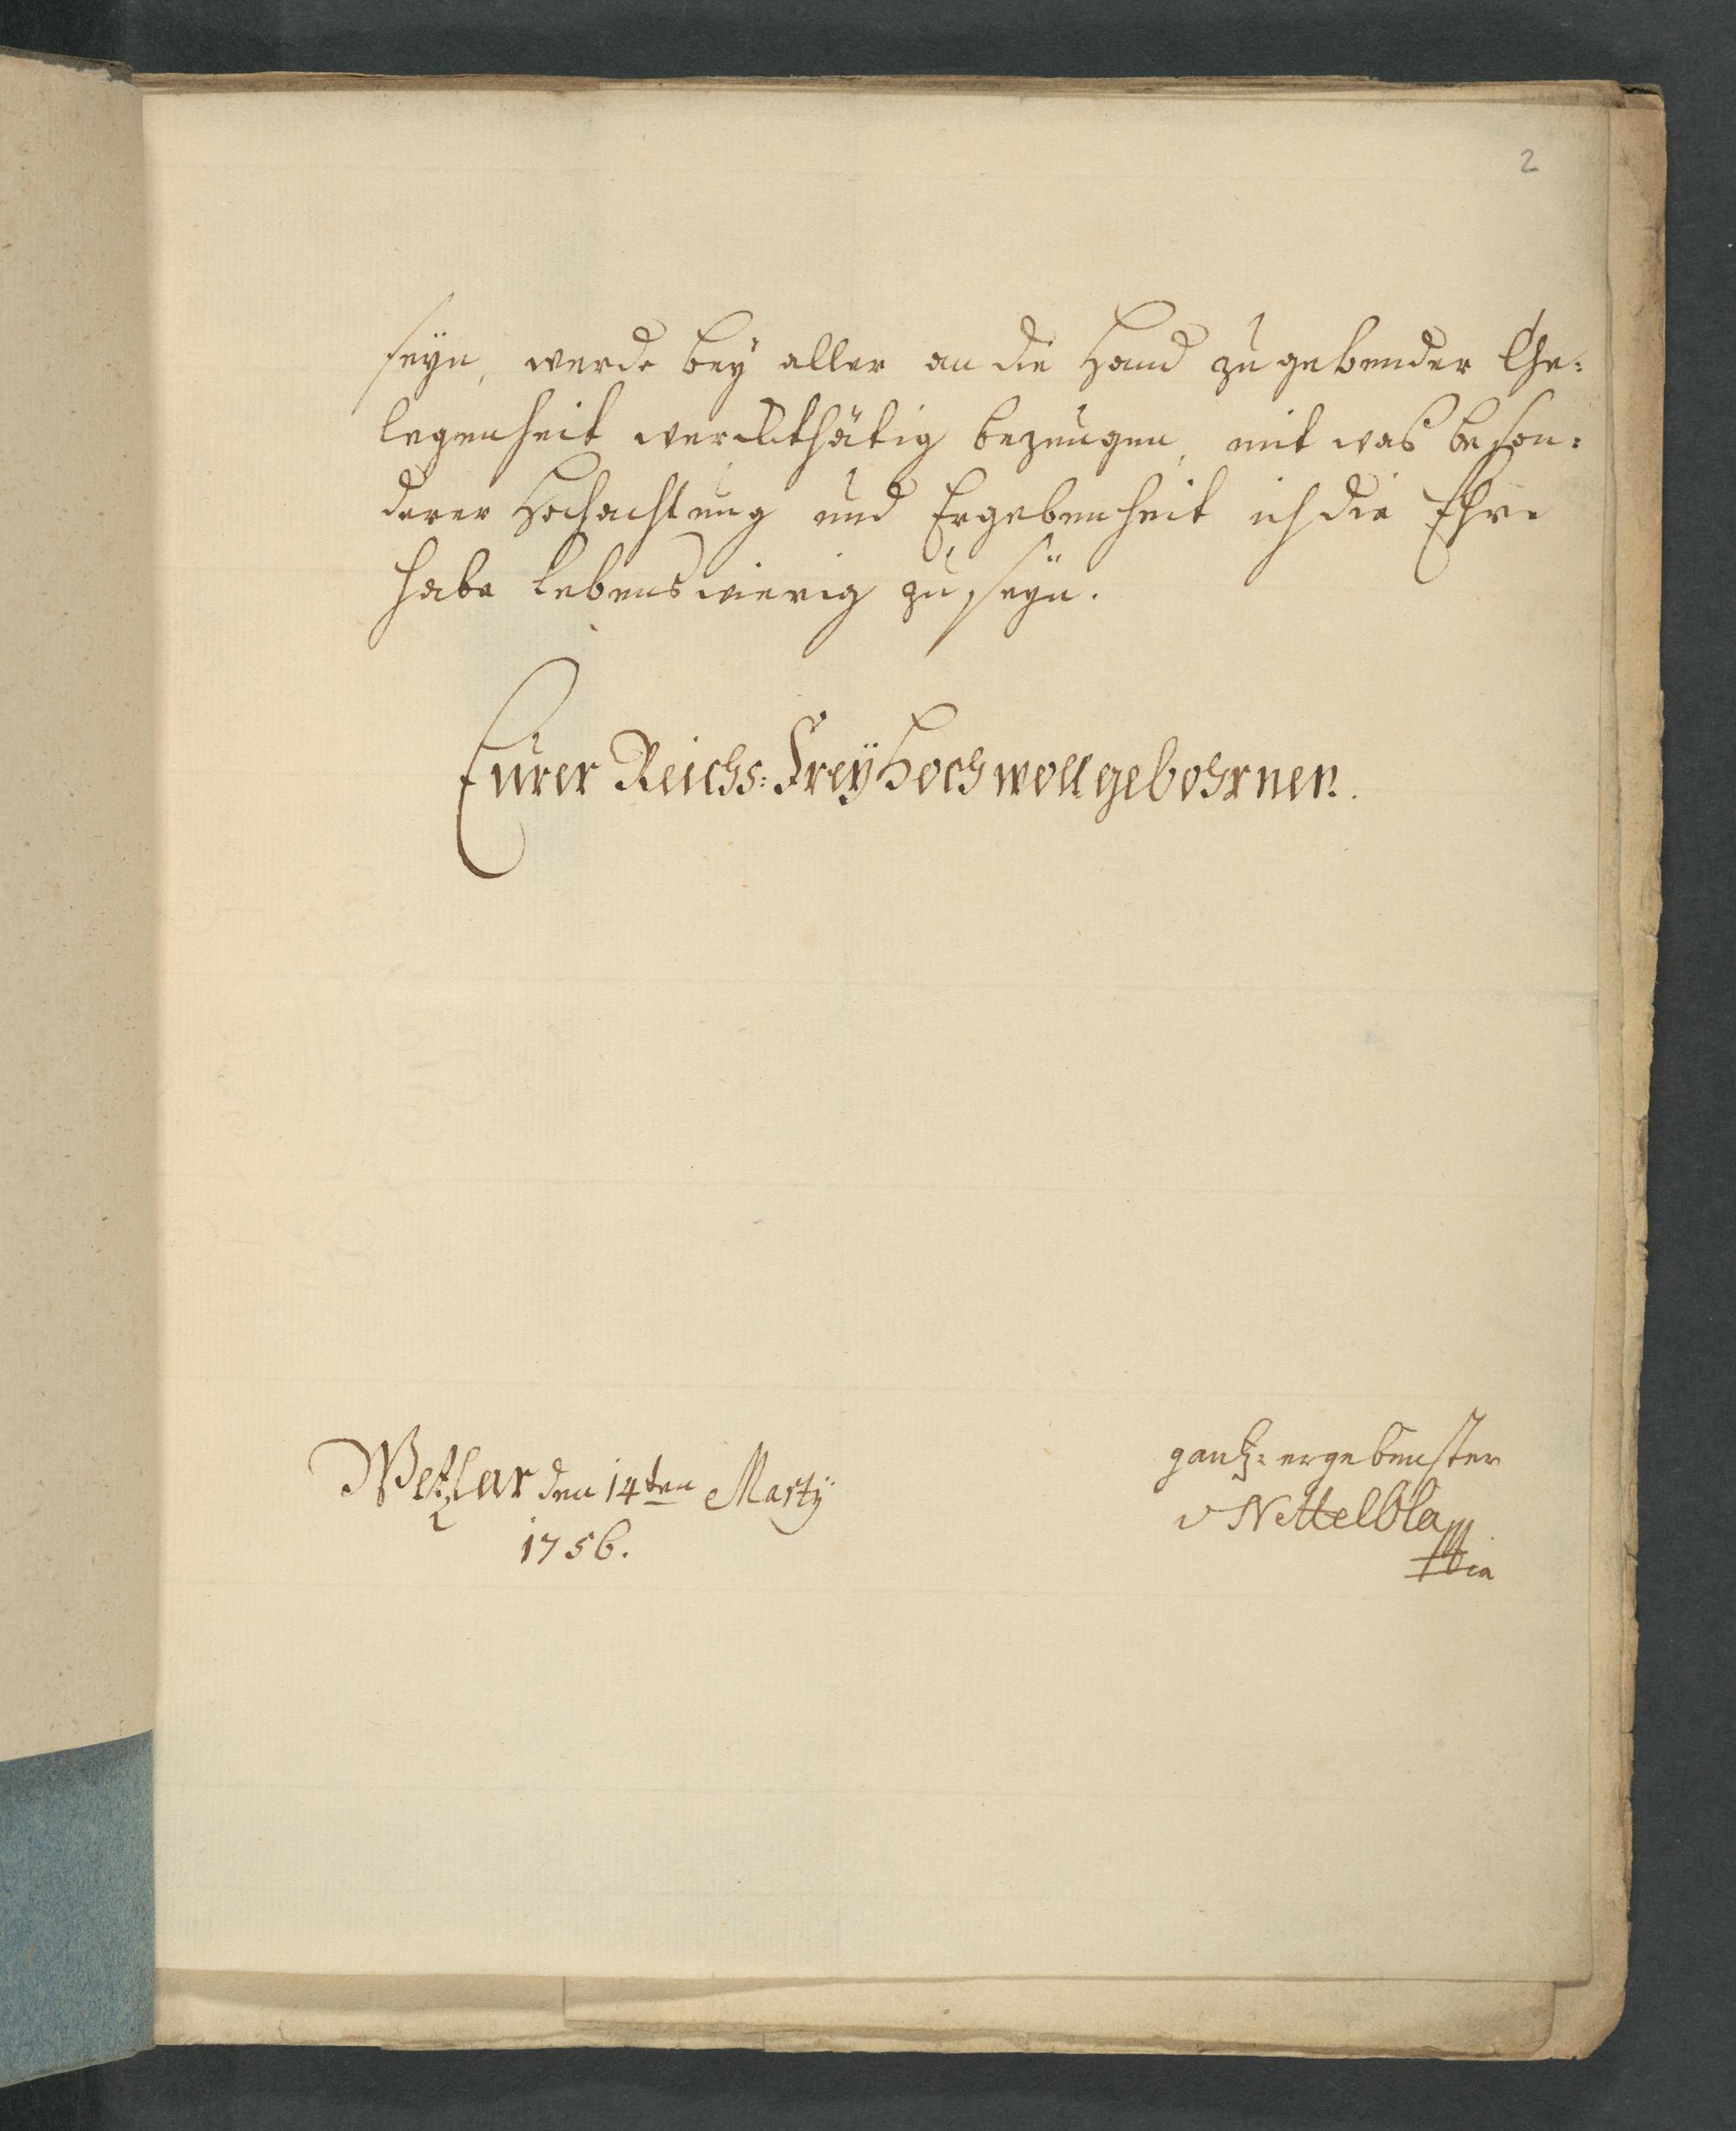 2
seyn, werde bey aller an die Hand zu gebender Ge:
legenheit werckthätig bezeugen, mit was beson:
derer Hochachtung und Ergebenheit ich die Ehre
habe lebenswierig zu seyn.
Eurer Reichs: Frey Hochwollgebohrnen.
gantz: ergebenster
v Nettelbla
Wetzlar den 14ten Martij
1756.